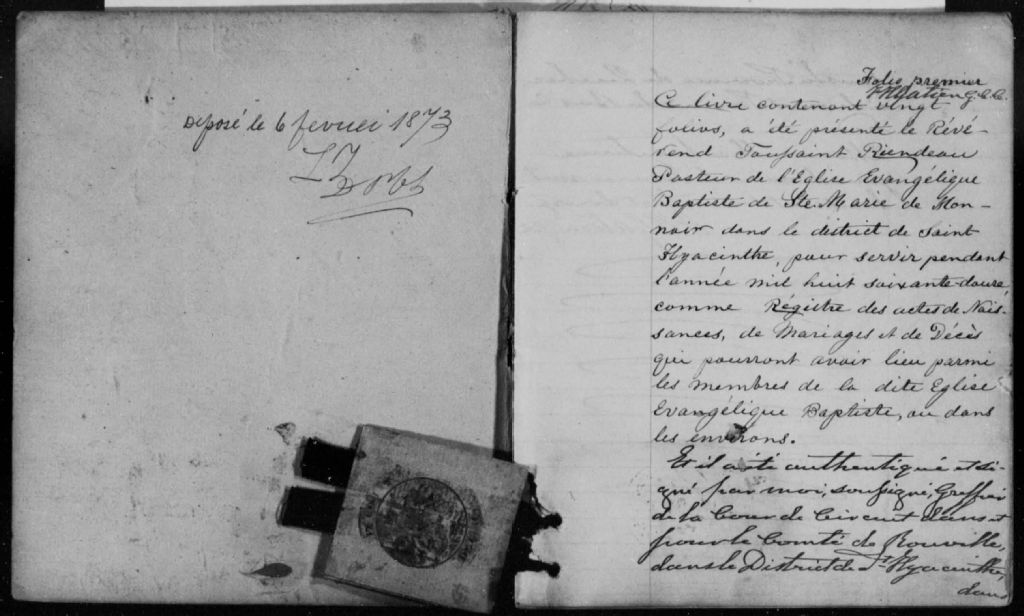 Déposé le 6 fevrier 1873
Folio premier
G.C.C.
Ce livre contenant vingt
folios, a été présenté le Révé-
rend Toussaint Riendeau
Pasteur de l'Eglise Evangélique
Baptiste de Ste. Marie de Mon-
noir dans le district de Saint
Hyacinthe, pour servir pendant
l'année mil huit soixante-douze,
comme Régistre des actes de Nais-
sances, de Mariages et de Décès
qui pourront avoir lieu parmi
les membres de la dite Eglise
Evangélique Baptiste, ou dans
les environs.
Et il a été authentiqué et si-
gné par moi, soussigné, Greffier
de la Cour de Circuit dans et
pour le Comté de Rouville,
dans le District de St. Hyacinthe,
dans